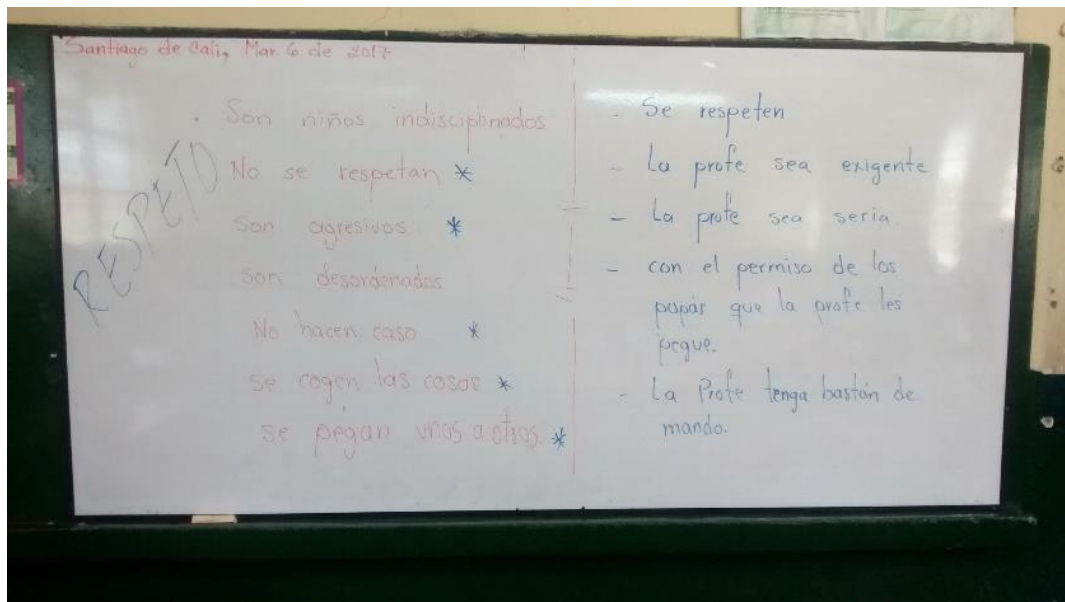 Santiago de Cali, Mar. 6 de 2017
RESPETO
. Son niños indisciplinados
No se respetan *
Son agresivos *
son desordenados
No hacen caso *
se cogen las cosas *
se pegan unos a otros *
- Se respeten
- La profe sea exigente
- La profe sea seria
- con el permiso de los
papás que la profe les
pegue.
- La Profe tenga bastón de
mando.